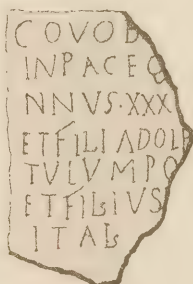 COVOB
INPACEQ
NNVS·XXX
ETFILIADOLP
TVLVMPO
ETFILIVS
ITAL